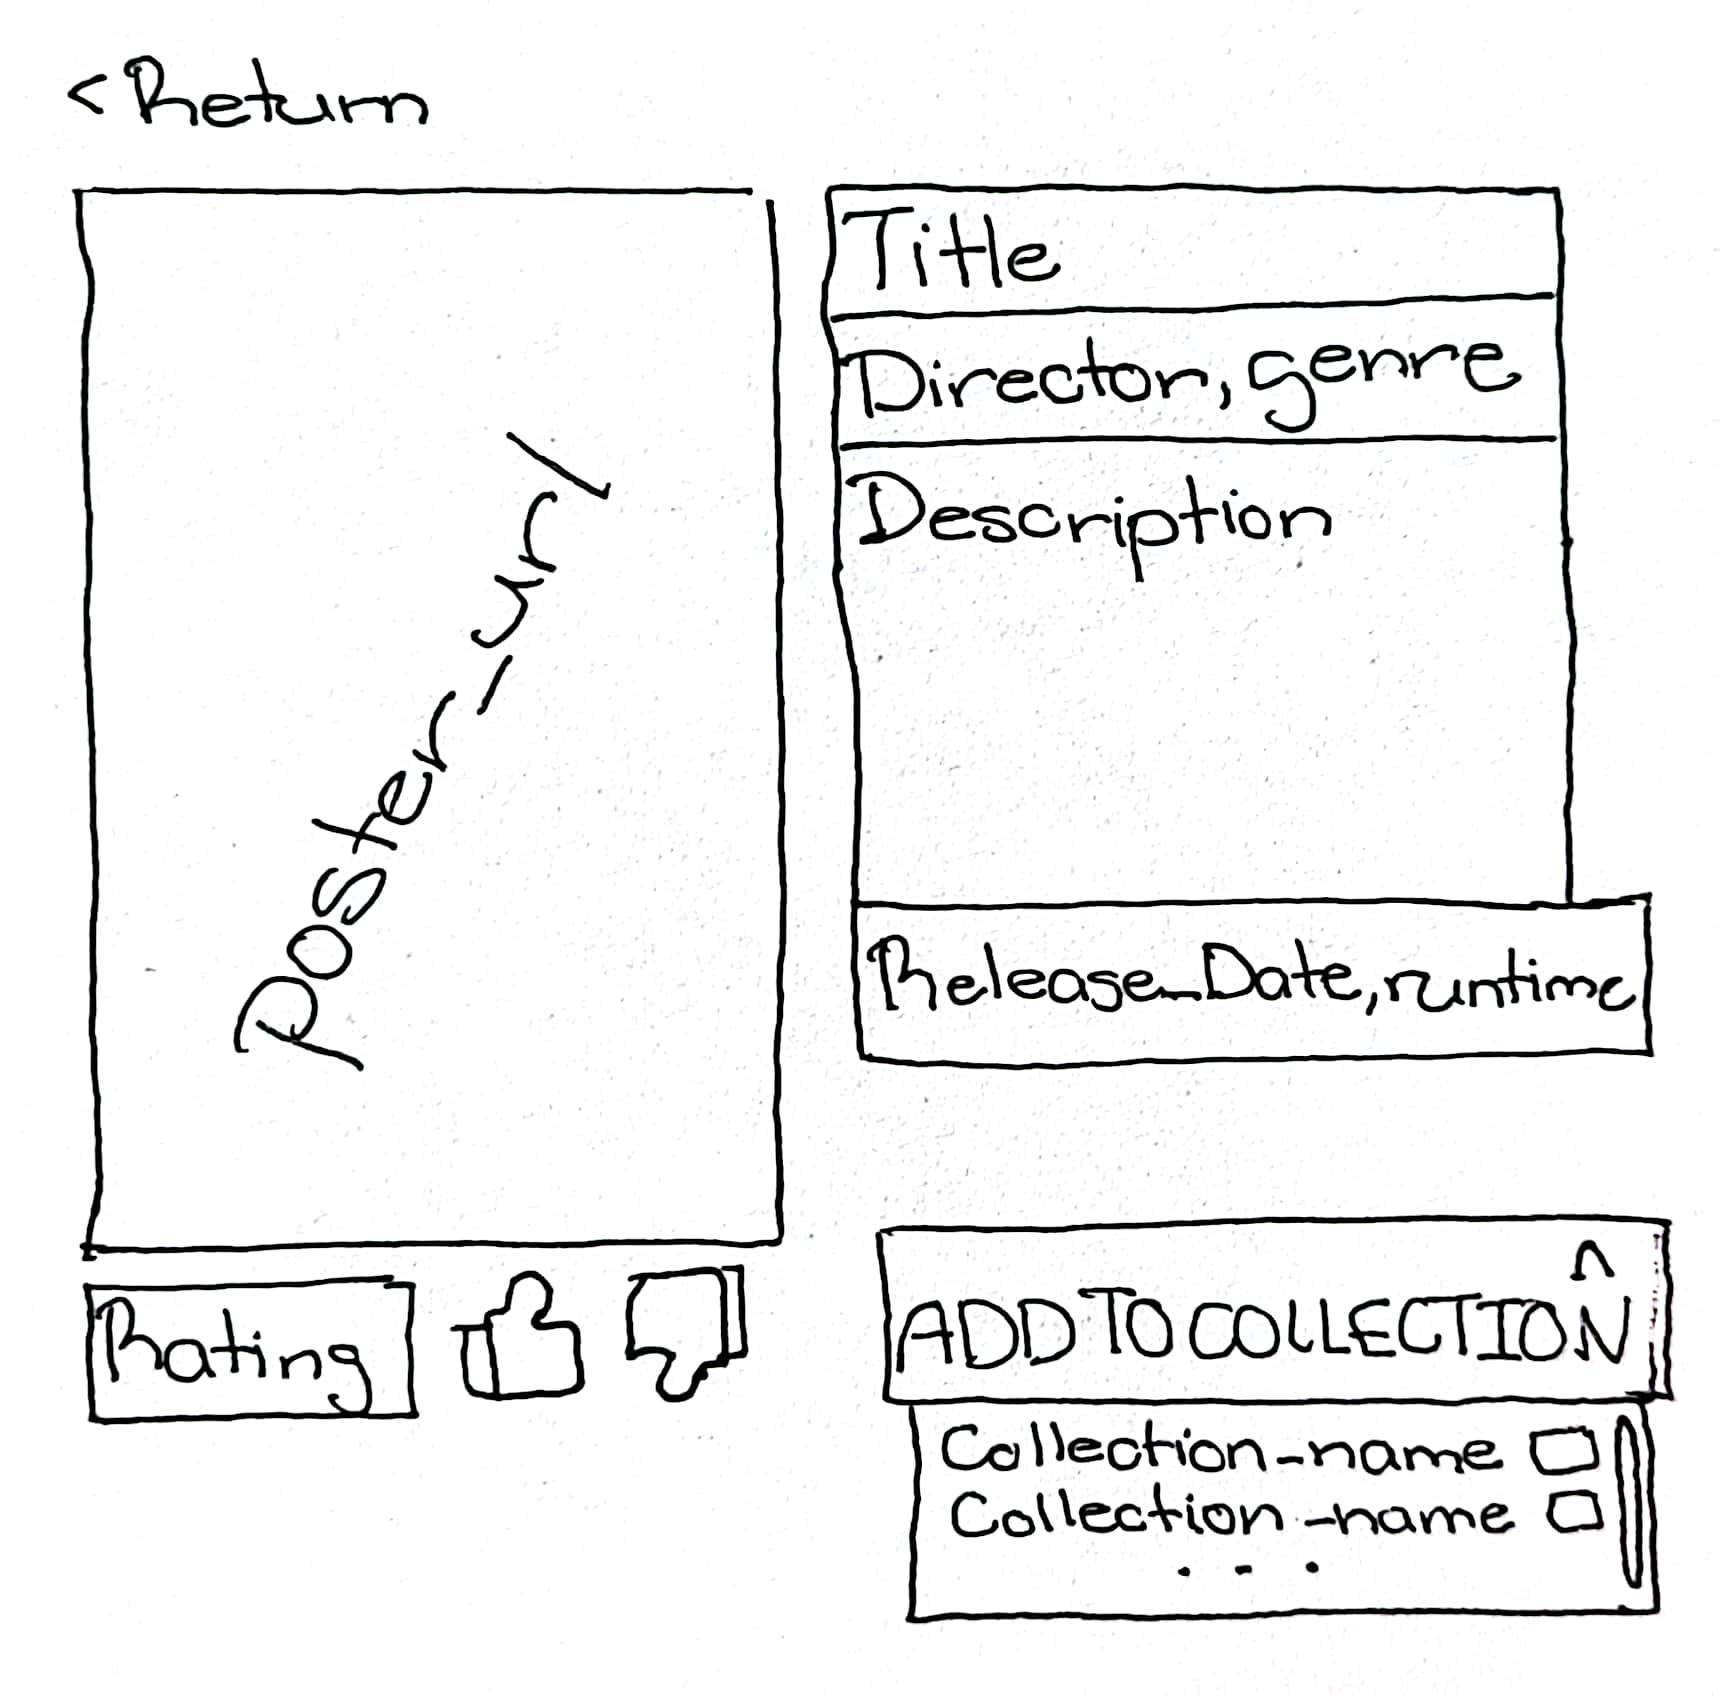 < Return
Poster_url
Title
Director, genre
Description
Release_Date, runtime
Rating
ADD TO COLLECTION
Collection_name
Collection_name
...